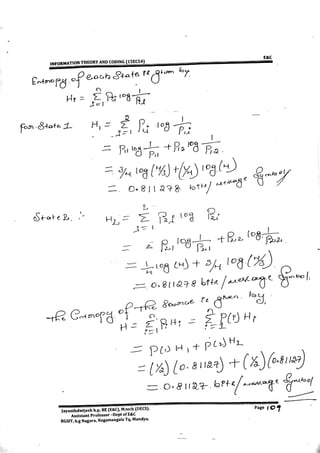 E&C
INFORMATION THEORY AND CODING (15EC54)
Entropy of each state is given by
Hi = Σ(j=1 to n) Pij log 1/Pij
for State 1 H1 = Σ(j=1 to 2) P1j log 1/P1j
= P11 log 1/P11 + P12 log 1/P12
= 3/4 log (4/3) + (1/4) log (4)
= 0.811278 bits/message Symbol
State 2 :- H2 = Σ(j=1 to 2) P2j log 1/P2j
= P21 log 1/P21 + P22 log 1/P22
= 1/4 log (4) + 3/4 log (4/3)
= 0.811278 bits/message Symbol.
The Entropy of the source is given by
H = Σ(i=1 to n) Pi Hi = Σ(i=1 to n) P(i) Hi
= P(1) H1 + P(2) H2
= (1/2) (0.81127) + (1/2) (0.81127)
= 0.81127 bits/message Symbol
Jayanthdwijesh h.p, BE (E&C), M.tech (DECS)
Page 109
Assistant Professor –Dept of E&C
BGSIT, b.g Nagara, Nagamangala Tq, Mandya.